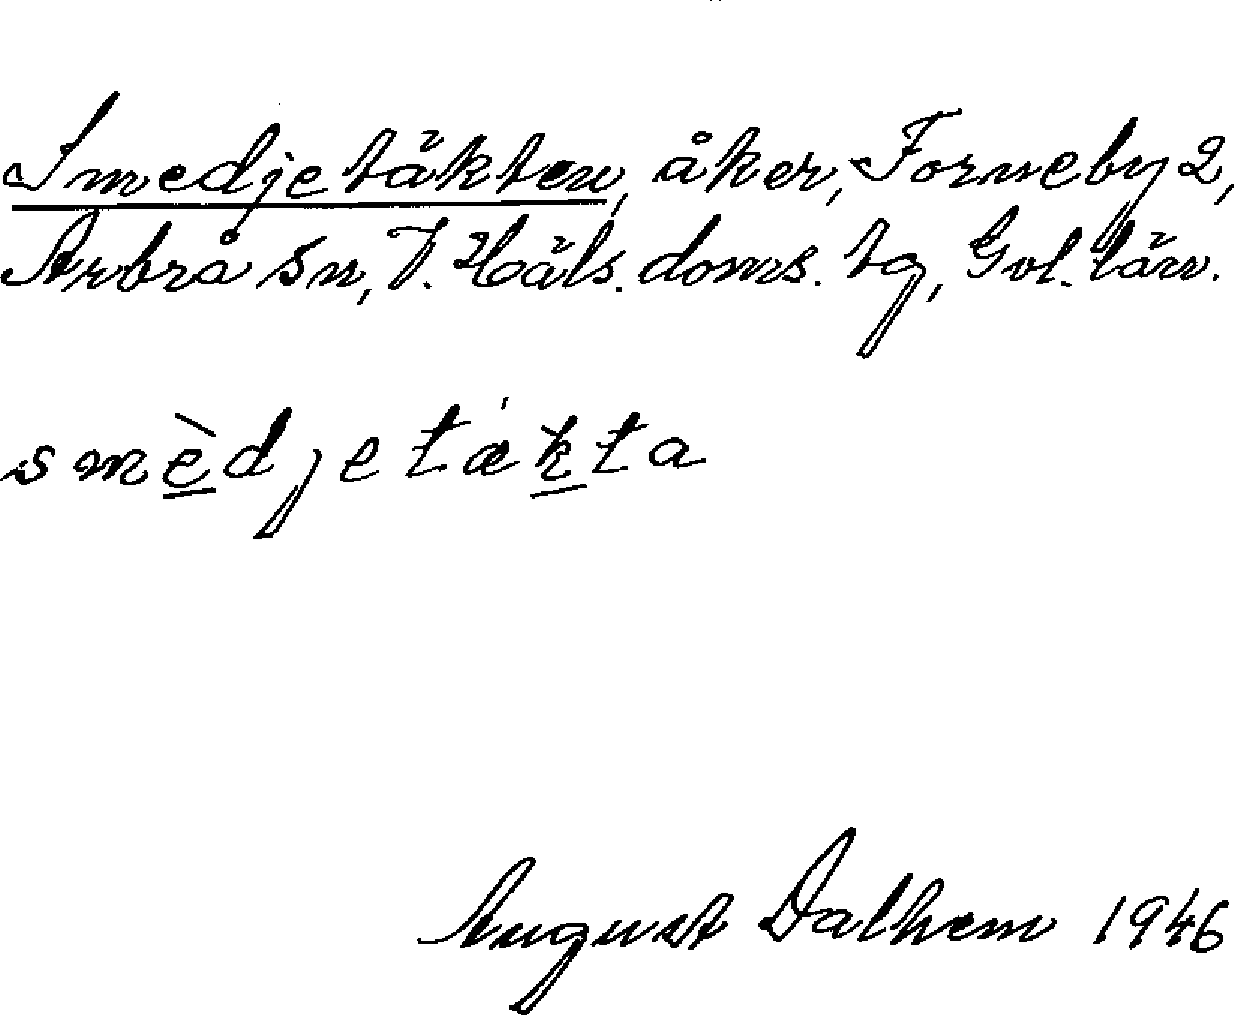 Smedjetäkten, åker, Forneby 2,
Arbrå sn, V. Häls. doms. tg, Gvl. län.
smèdjetækta
August Dalhem 1946